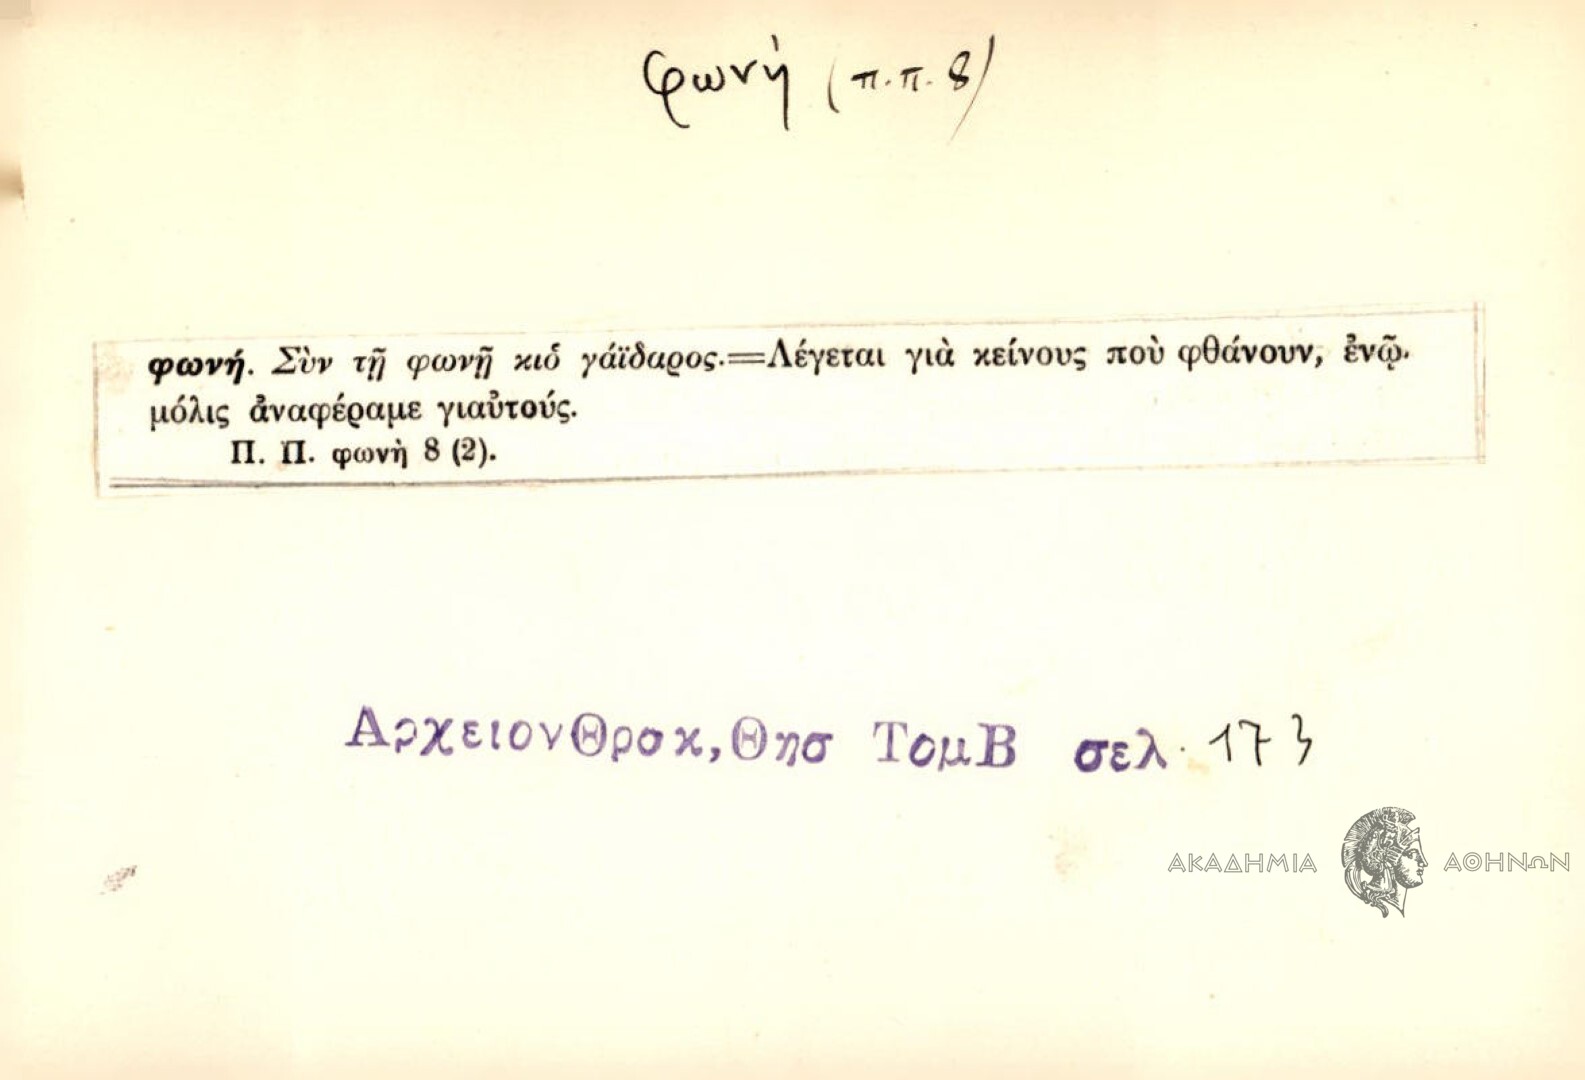 φωνή (π.π. 8)
φωνή. Σὺν τῇ φωνῇ κιὁ γάϊδαρος.=Λέγεται γιὰ κείνους ποὺ φθάνουν, ἐνῷ.
μόλις ἀναφέραμε γιαὐτούς.
Π. Π. φωνὴ 8 (2).
ΑρχειονΘροκ,Θησ ΤομΒ σελ. 173
ΑΚΑΔΗΜΙΑ ΑΘΗΝΩΝ